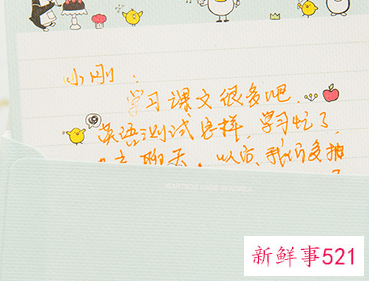 小刚:
学习课文很多吧.
英语测试怎样,学习忙了,
聊天。以后,我们多抽
新鲜事521